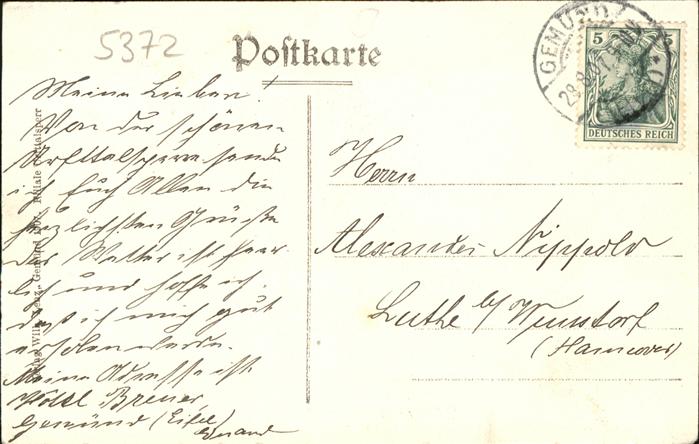 5372
Postkarte
GEMÜND
28.8.07.
5
DEUTSCHES REICH
Meine Lieben!
Von der schönen
Urfttalsperre sende
ich Euch Allen die
herzlichsten Grüße
Das Wetter ist herr-
lich und hoffe ich,
daß ich mich gut
erholen werde.
Meine Adresse ist
Hôtel Breuer,
Gemünd (Eifel)
Herrn
Alexander Nippold
Luthe b/ Wunstorf
(Hannover)
Gemünd 1907. Filiale Urfttalsperr